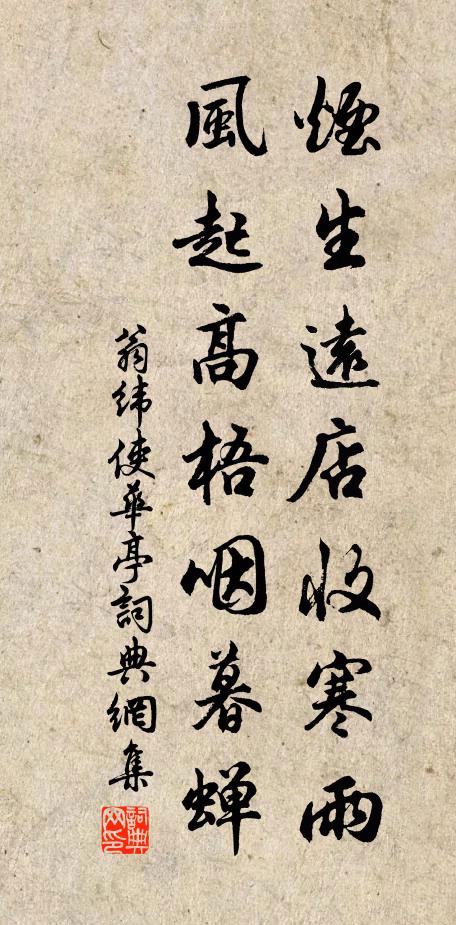 煙生遠店收寒雨
風起高梧咽暮蟬
翁緯使華亭詞典網集
詞典網印